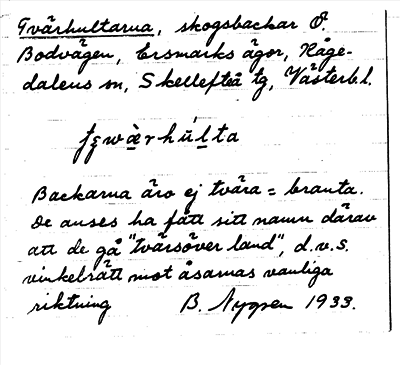 Tvärhultarna, skogsbackar Ö.
Bodvägen, Ersmarks ägor, Kåge-
dalens sn, Skellefteå tg, Västerb.l.
Backarna äro ej tvära = branta.
De anses ha fått sitt namn därav
att de gå "tvärsöver land", d.v.s.
vinkelrätt mot åsarnas vanliga
riktning B. Nygren 1933.